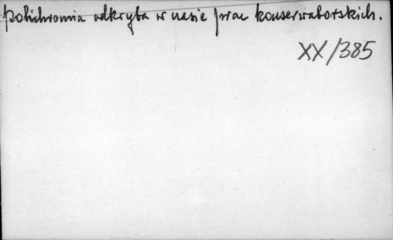 Polichromia odkryta w czasie prac konserwatorskich.
XX/385